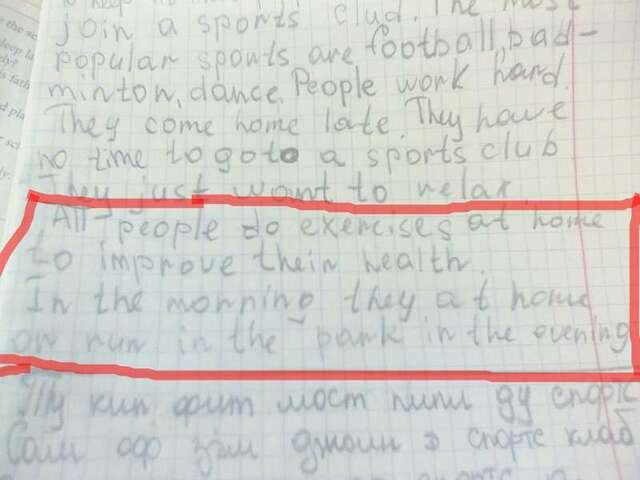 join a sports clud. The most
popular sponts are football, bad-
minton, dance. People work hard.
They come home late. They have
no time to goto a sports club
They just want to relax.
All people do exercises at home
to improve thein health.
In the morning they at home
or run in the park in the evening
Ту кип фит мост пипл ду спортс
Сам оф зэм джоин э спортс клаб